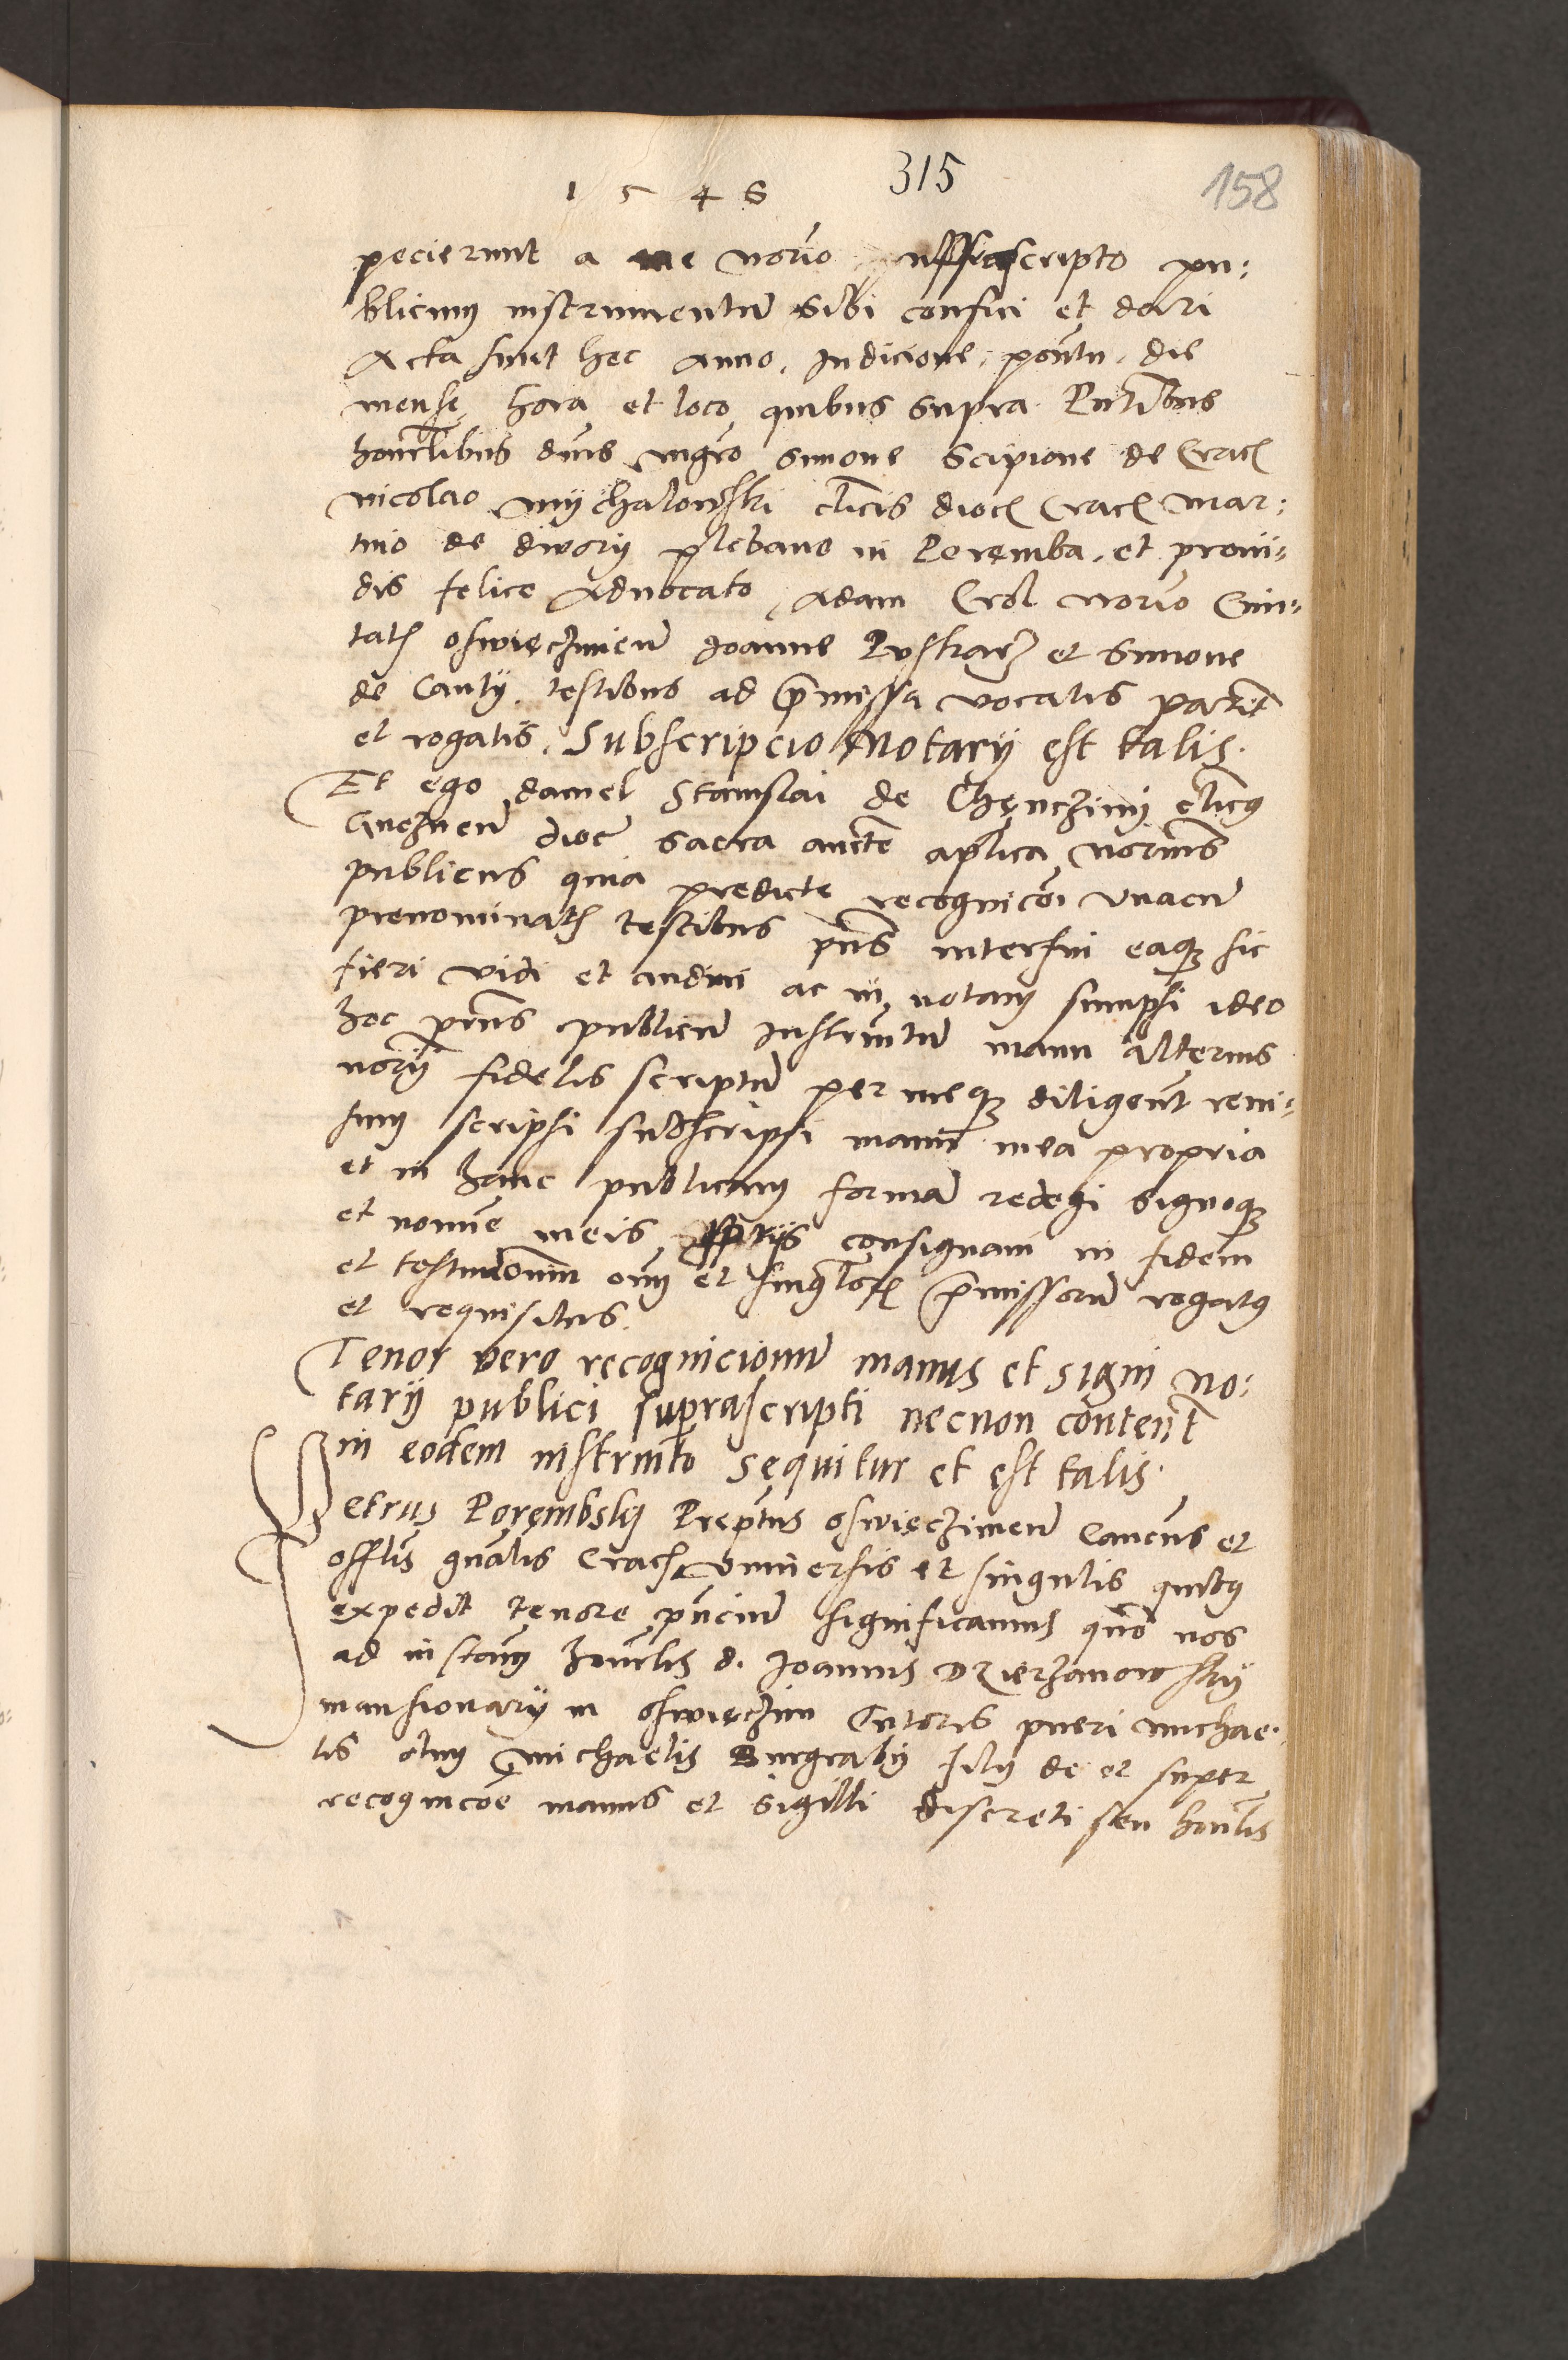 1546 315 158
pecierunt a me norio infrascripto pu:
blicum instrumentum sibi confici et dari
Acta sunt hec anno, Indicione, pontu, die
mense, hora et loco quibus supra Pntibus
honorlibus dnis mgro Simone Scipione de Crac
nicolao mychalowski clicis dioc Crac mar:
tino de dwory plebano in Poremba, et provi:
dis felice Advocato, Adam Crol norio Civi:
tatis osswięczimen Joanne et Simone
de Canty, testibus ad pmissa vocatis
et rogatis. Subscripcio Notarij est talis.
Et ego daniel Stanislai de Chęnczinij clicus
Gneznen dioc sacra aucte aplica norius
publicus quia predicte recognicoi unacum
prenominatis testibus pns interfui eaque sic
fieri vidi et audivi ac in notam sumpsi ideo
hoc prns publicum Instrmtum manu alterius
norij fidelis scriptum per meque diligent revi:
sum scripsi subscripsi manu mea propria
et in hanc publicam formam redegi signoque
et nomine meis consignavi in fidem
et testimonium omnium et singlorum pmissorum rogatus
et requisitus.
Tenor vero recognicionum manus et signi no:
tarij publici suprascripti necnon content
in eodem instrmto sequitur et est talis.
Petrus Porembsky Preptus osswięczimen Cancus et
offlis gnalis Crac universis et singulis quibus
expedit tenore pncium significamus quo nos
ad instam honrlis d. Joannis Dzierzanowskij
mansionarij in osswięczim Tutoris pueri michae:
lis olim michaelis Burgrabij filij de et super
recognicoe manus et sigilli discreti seu honrlis